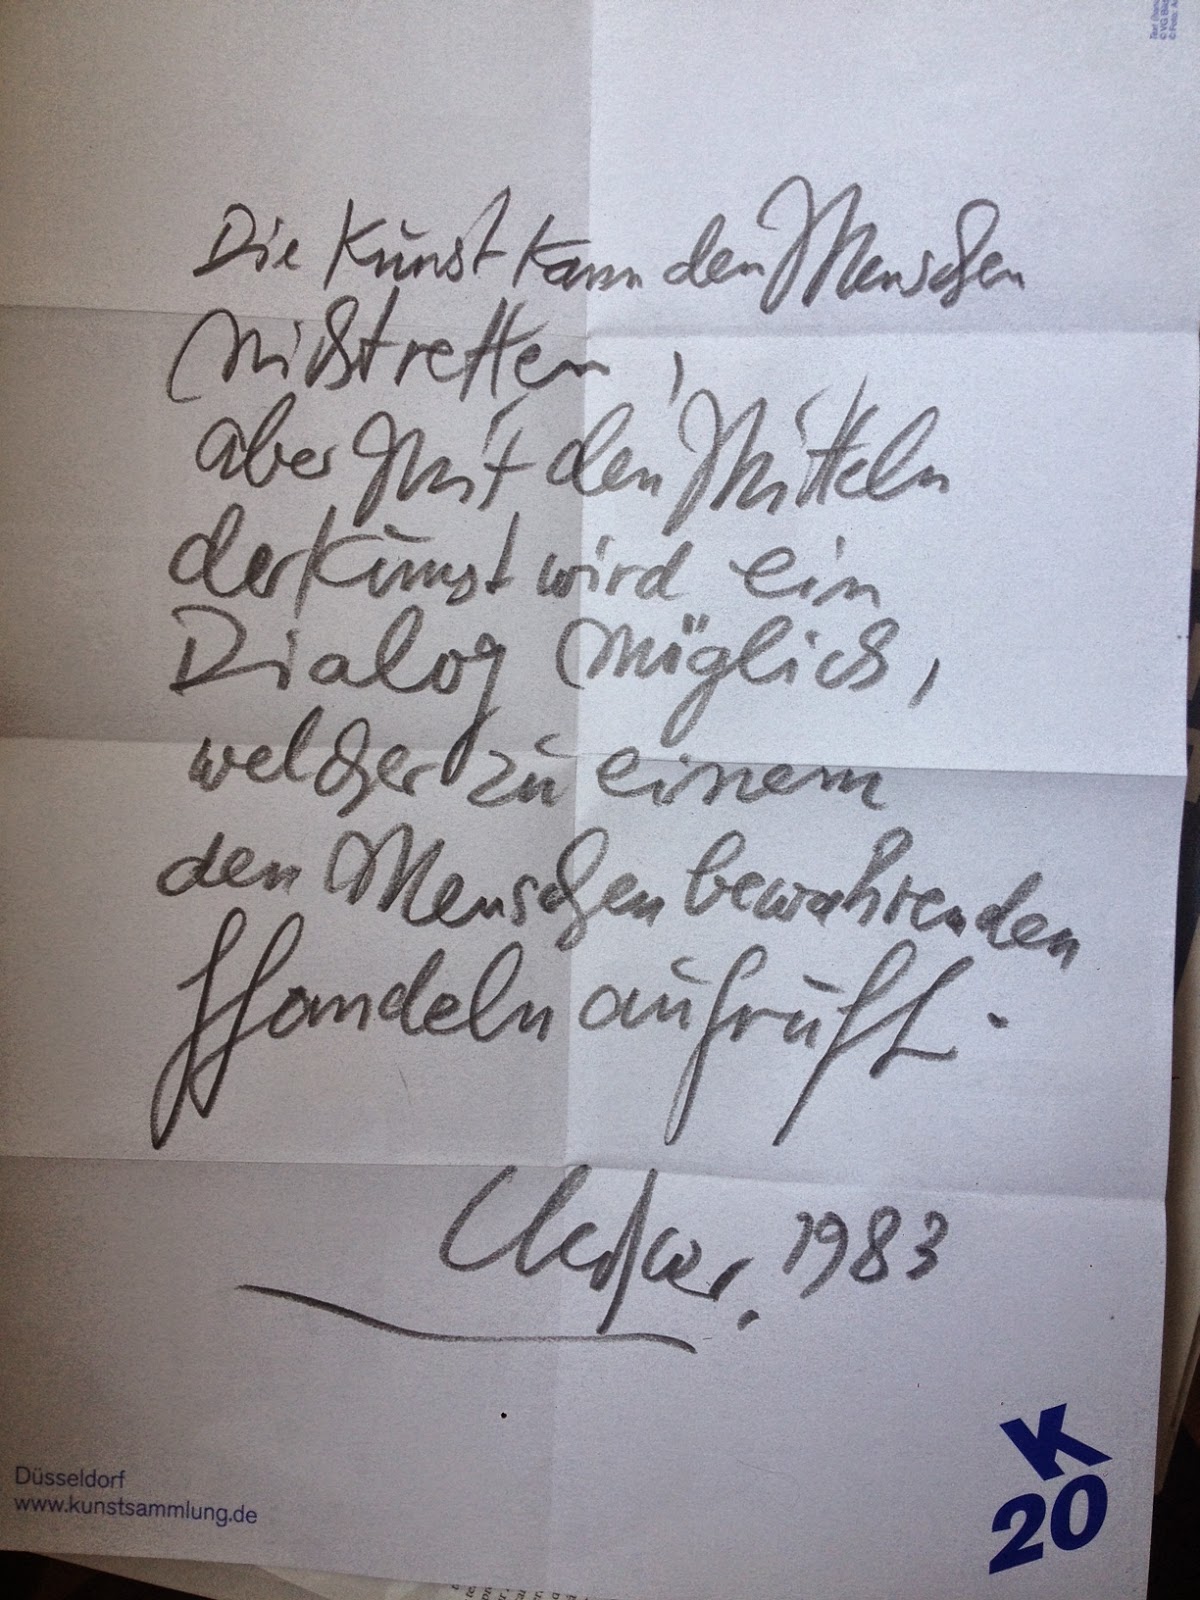 Die Kunst kann den Menschen
nicht retten,
aber mit den Mitteln
der Kunst wird ein
Dialog möglich,
welcher zu einem
den Menschen bewahrenden
Handeln aufruft.
Uecker. 1983
Düsseldorf
www.kunstsammlung.de
K
20